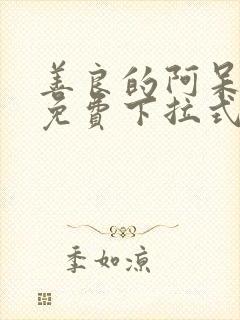 善良的阿呆
免費下拉式
季如涼